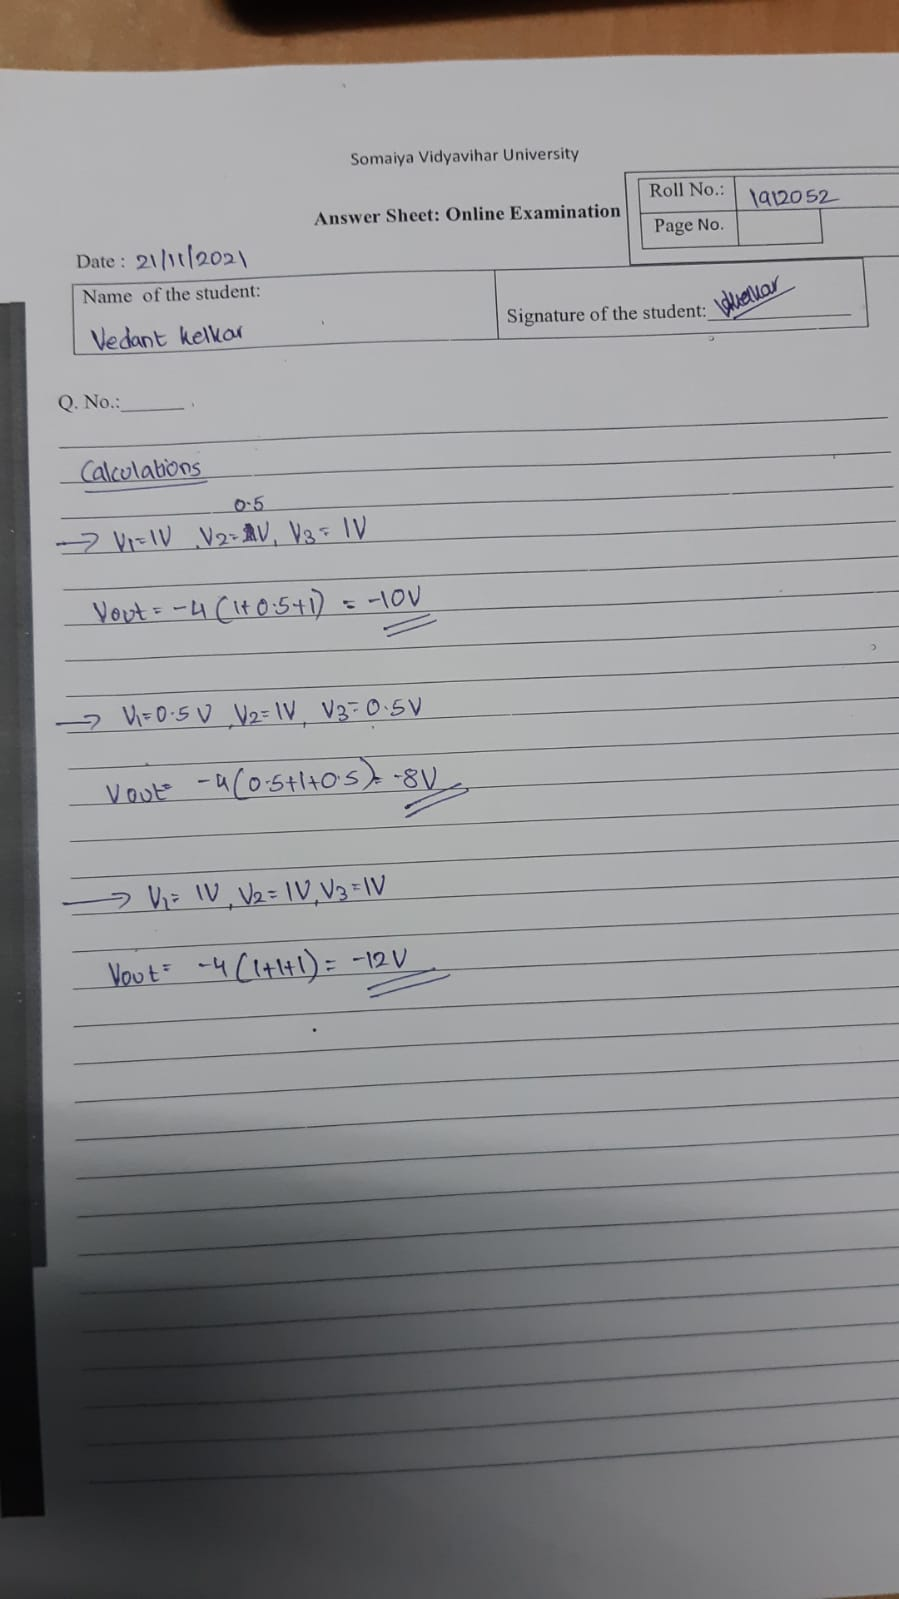 Somaiya Vidyavihar University
Roll No.: 1912052
Answer Sheet: Online Examination
Page No.
Date : 21/11/2021
Name of the student:
Signature of the student:
Vedant Kelkar
Q. No.:
Calculations
0.5
→ V1=1V, V2= V, V3=1V
Vout = -4(1+0.5+1) = -10V
→ V1=0.5V, V2=1V, V3=0.5V
Vout= -4(0.5+1+0.5)= -8V
→ V1= 1V, V2=1V, V3=1V
Vout= -4(1+1+1)= -12V